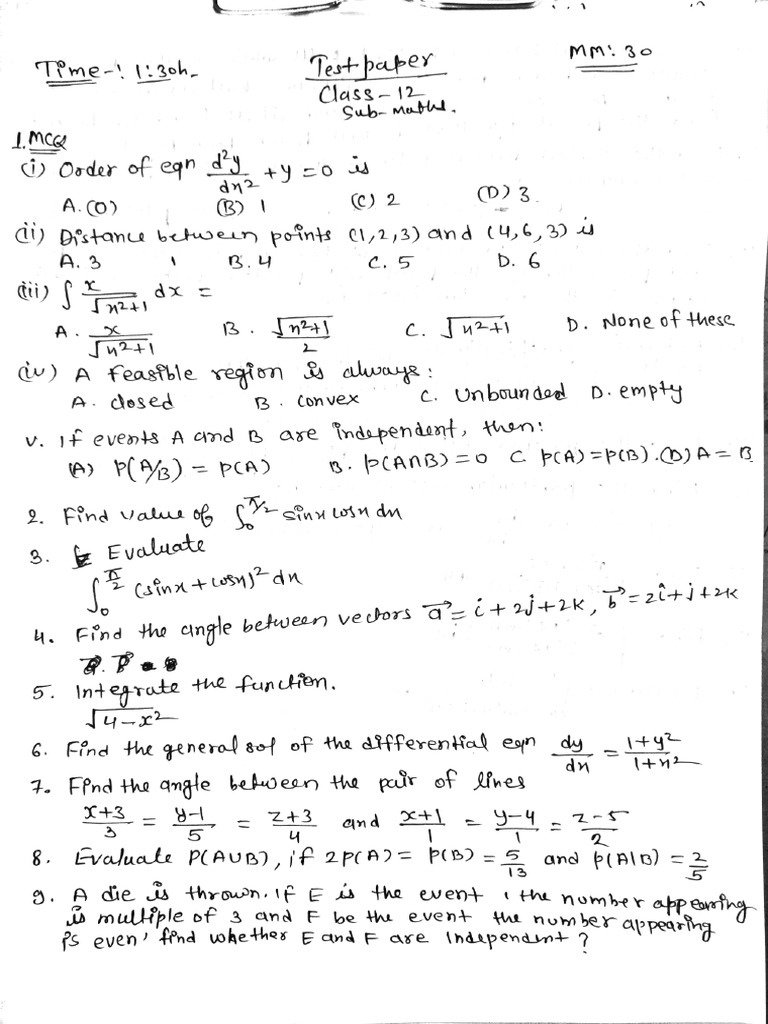 Time-: 1:30h-
Test paper
MM: 30
Class-12
Sub-Maths.
1. MCQ
(i) Order of eqn d²y/dx² + y = 0 is
A. (0) (B) 1 (C) 2 (D) 3
(ii) Distance between points (1,2,3) and (4,6,3) is
A. 3 B. 4 C. 5 D. 6
(iii) ∫ x/√x²+1 dx =
A. x/√x²+1 B. √x²+1/2 C. √x²+1 D. None of these
(iv) A feasible region is always:
A. closed B. convex C. Unbounded D. empty
v. If events A and B are independent, then:
(A) P(A/B) = P(A) B. P(A∩B) = 0 C. P(A) = P(B). (D) A = B
2. Find value of ∫₀^π/2 sinx cosx dx
3. Evaluate
∫₀^π/2 (sinx + cosx)² dx
4. Find the angle between vectors a⃗ = i + 2j + 2k, b⃗ = 2î + j + 2k
5. Integrate the function.
√4-x²
6. Find the general sol of the differential eqn dy/dx = 1+y²/1+x²
7. Find the angle between the pair of lines
x+3/3 = y-1/5 = z+3/4 and x+1/1 = y-4/1 = z-5/2
8. Evaluate P(A∪B), if 2P(A) = P(B) = 5/13 and P(A|B) = 2/5
9. A die is thrown. If E is the event ' the number appearing
is multiple of 3 and F be the event the number appearing
is even' find whether E and F are Independent ?